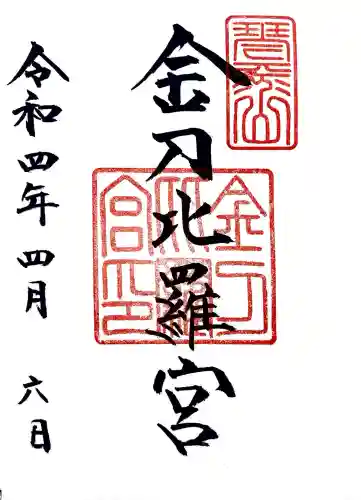 琴平山
金刀比羅宮
金刀比羅宮印
令和四年四月六日